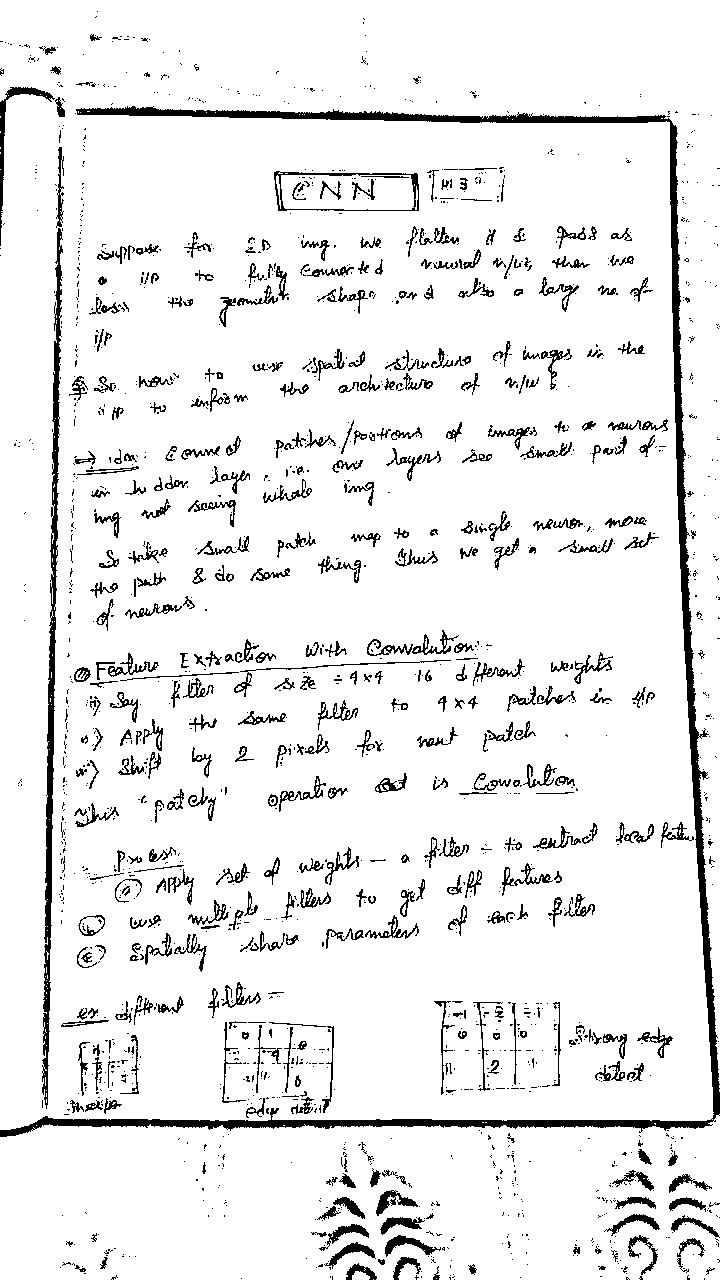 CNN
Suppose for 2D img. we flatten it & pass as
a i/p to fully connected neural n/w, then we
loses the geometric shape and also a large no. of
i/p
So how to use spatial structure of images in the
i/p to inform the architecture of n/w?
→ idea: Connect patches/portions of images to a neurons
in hidden layer, i.e. one layers see small part of
img not seeing whole img.
So take small patch map to a single neuron, move
the path & do same thing. Thus we get a small set
of neurons.
Feature Extraction With Convolution:-
i) Say filter of size = 4x4 16 different weights
ii) Apply the same filter to 4x4 patches in i/p
iii) Shift by 2 pixels for next patch.
This "patchy" operation is Convolution
Process
(a) Apply set of weights - a filter - to extract local featu
(b) use multiple filters to get diff features
(c) Spatially share parameters of each filter
ex different filters -
-1 -2 -1
0 1 0
0 0 0
Strong edge
2
detect
edge detect